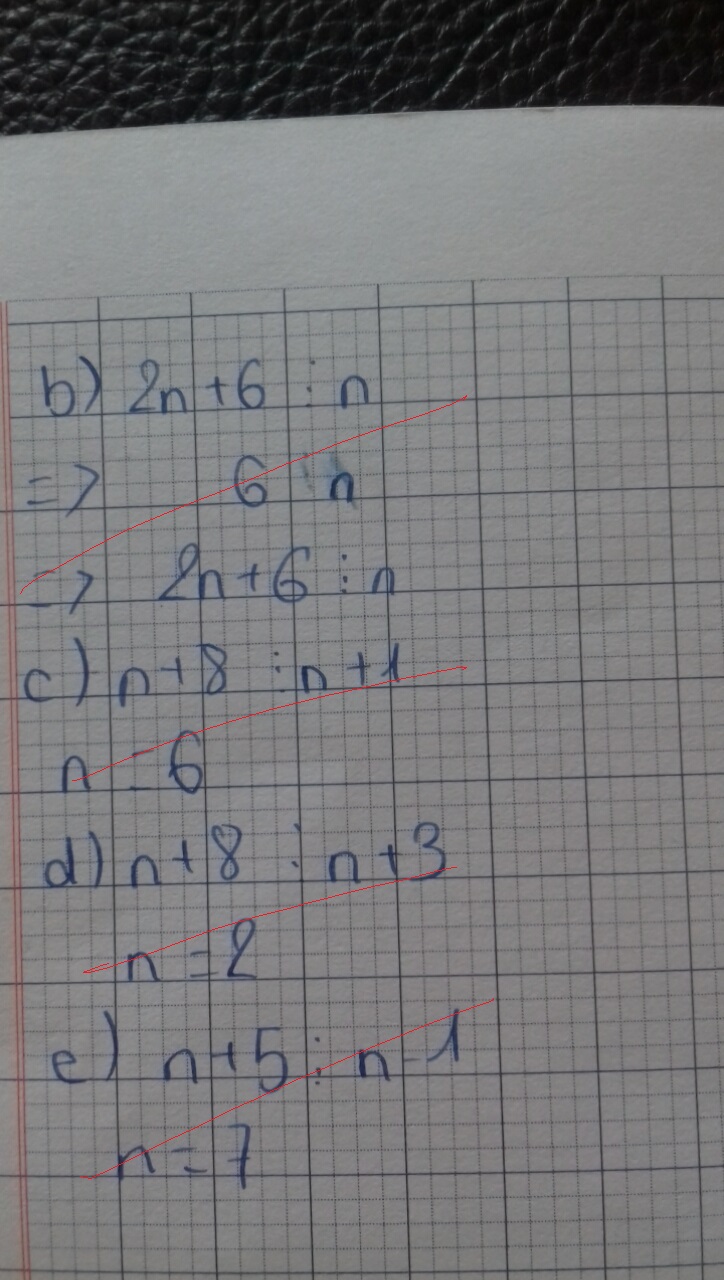 b) 2n+6 ⋮ n
=> 6 ⋮ n
=> 2n+6 ⋮ n
c) n+8 ⋮ n+1
n = 6
d) n+8 ⋮ n+3
n = 2
e) n+5 ⋮ n-1
n = 7